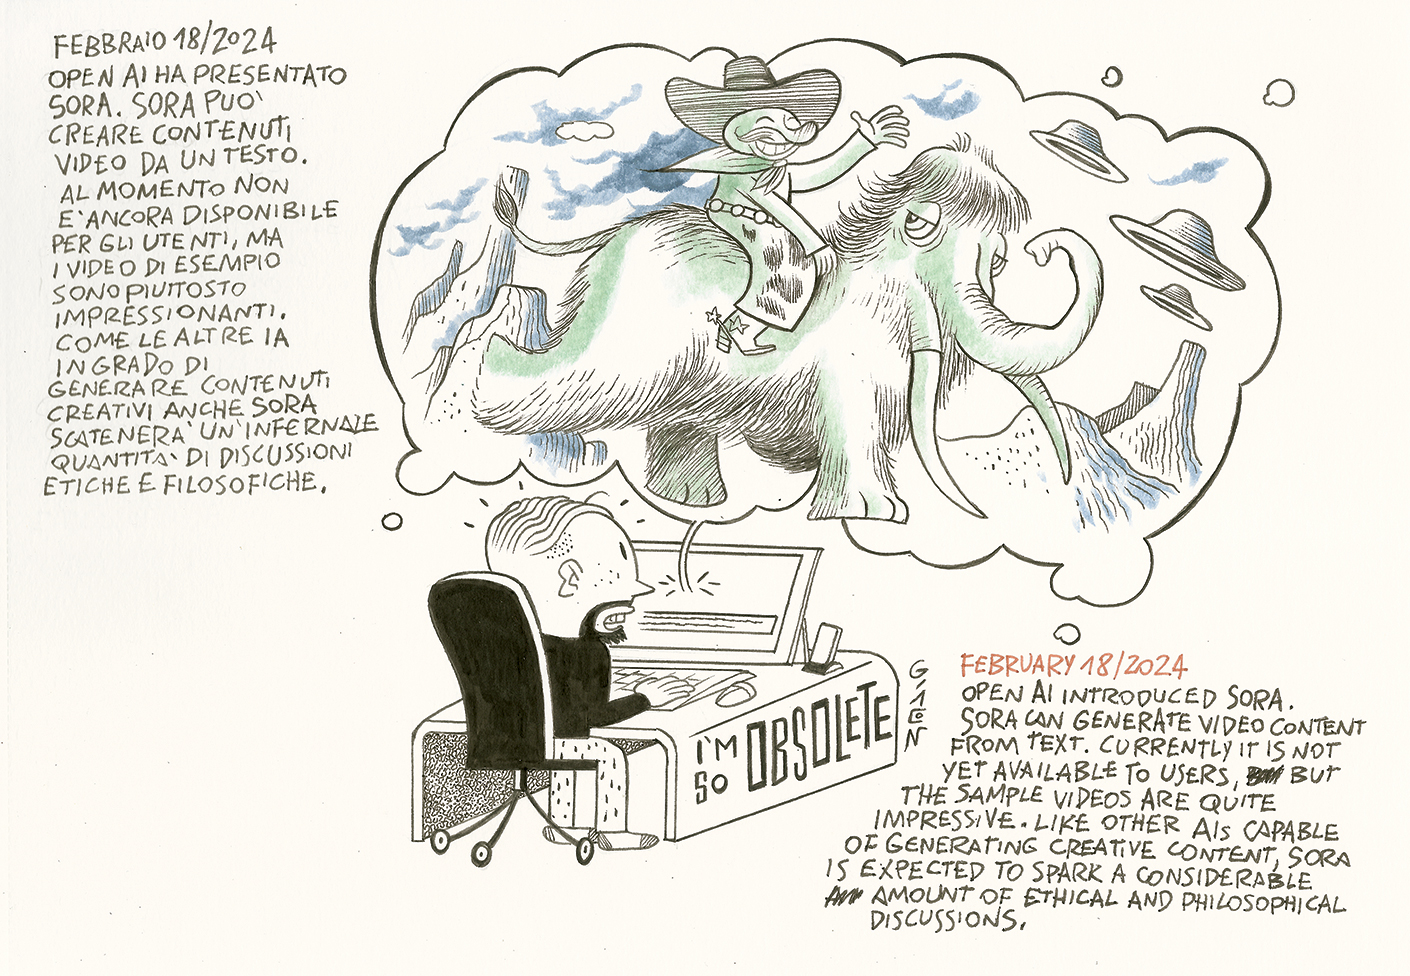 FEBBRAIO 18/2024
OPEN AI HA PRESENTATO
SORA. SORA PUO'
CREARE CONTENUTI
VIDEO DA UN TESTO.
AL MOMENTO NON
E' ANCORA DISPONIBILE
PER GLI UTENTI, MA
I VIDEO DI ESEMPIO
SONO PIUTTOSTO
IMPRESSIONANTI.
COME LE ALTRE IA
IN GRADO DI
GENERARE CONTENUTI
CREATIVI ANCHE SORA
SCATENERA' UN'INFERNALE
QUANTITA' DI DISCUSSIONI
ETICHE E FILOSOFICHE.
I'M
SO OBSOLETE
FEBRUARY 18/2024
OPEN AI INTRODUCED SORA.
SORA CAN GENERATE VIDEO CONTENT
FROM TEXT. CURRENTLY IT IS NOT
YET AVAILABLE TO USERS, BUT
THE SAMPLE VIDEOS ARE QUITE
IMPRESSIVE. LIKE OTHER AIs CAPABLE
OF GENERATING CREATIVE CONTENT, SORA
IS EXPECTED TO SPARK A CONSIDERABLE
AMOUNT OF ETHICAL AND PHILOSOPHICAL
DISCUSSIONS.